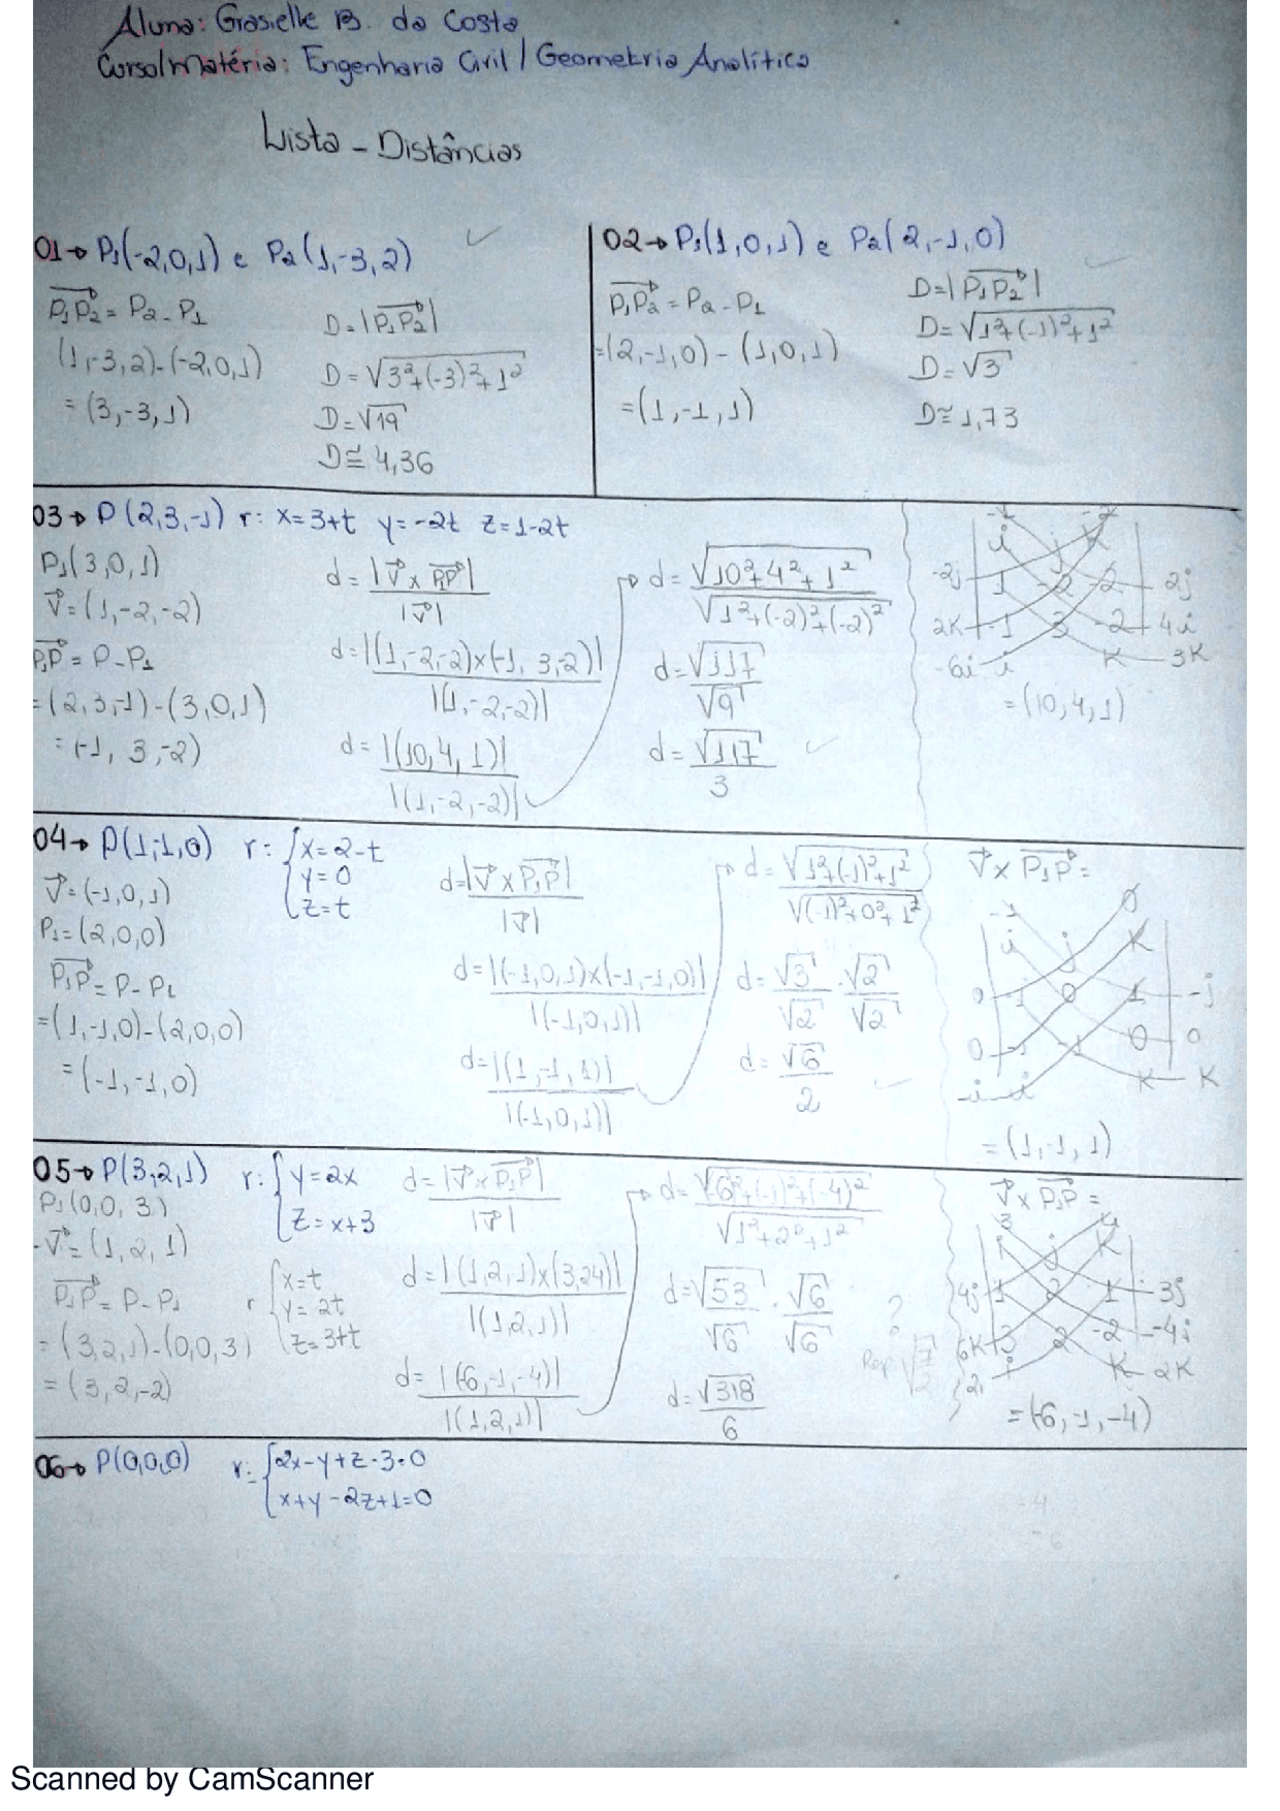 Aluna: Grasielle B. da Costa
Curso/matéria: Engenharia Civil / Geometria Analítica
Lista - Distâncias
01→ P₁(-2,0,1) e P₂(1,-3,2)
P₁P₂ = P₂ - P₁
(1,-3,2)-(-2,0,1)
= (3,-3,1)
D=|P₁P₂|
D=√3²+(-3)²+1²
D=√19
D≅ 4,36
02→ P₁(1,0,1) e P₂(2,-1,0)
P₁P₂ = P₂ - P₁
=(2,-1,0) - (1,0,1)
=(1,-1,1)
D=|P₁P₂|
D=√1²+(-1)²+1²
D=√3
D≅ 1,73
03→ P(2,3,-1) r: x=3+t y=-2t z=1-2t
P₁(3,0,1)
V=(1,-2,-2)
P₁P = P-P₁
=(2,3,-1)-(3,0,1)
=(-1, 3,-2)
d=|V x P₁P|
|V|
d=|(1,-2,-2)x(-1, 3,-2)|
|(1,-2,-2)|
d= |(10,4,1)|
|(1,-2,-2)|
d= √10²+4²+1²
√1²+(-2)²+(-2)²
d=√117
√9
d=√117
3
i j k
-2j 1 -2 -2 2j
2k -1 3 -2 4i
-6i i k 3k
=(10,4,1)
04→ P(1,-1,0) r: {x=2-t
y=0
z=t
V=(-1,0,1)
P₁=(2,0,0)
P₁P = P-P₁
=(1,-1,0)-(2,0,0)
=(-1,-1,0)
d=|V x P₁P|
|V|
d=|(-1,0,1)x(-1,-1,0)|
|(-1,0,1)|
d=|(1,-1,1)|
|(-1,0,1)|
d= √1²+(-1)²+1²
√(-1)²+0²+1²
d= √3 . √2
√2 √2
d= √6
2
V x P₁P =
i j k
0 -1 0 1 -j
0 -1 -1 0 0
-i i k k
=(1,-1,1)
05→ P(3,2,1) r: {y=2x
z=x+3
P₁(0,0,3)
V=(1,2,1)
P₁P = P-P₁
=(3,2,1)-(0,0,3)
=(3,2,-2)
r {x=t
y=2t
z=3+t
d=|V x P₁P|
|V|
d=|(1,2,1)x(3,24)|
|(1,2,1)|
d= |(-6,-1,-4)|
|(1,2,1)|
d= √-6²+(-1)²+(-4)²
√1²+2²+1²
d=√53 . √6
√6 √6
d=√318
6
?
V x P₁P =
i j k
4j 1 2 1 3j
6k 3 2 -2 -4i
2i i k 2k
=(-6,-1,-4)
06→ P(0,0,0) r: {2x-y+z-3=0
x+y-2z+1=0
Scanned by CamScanner